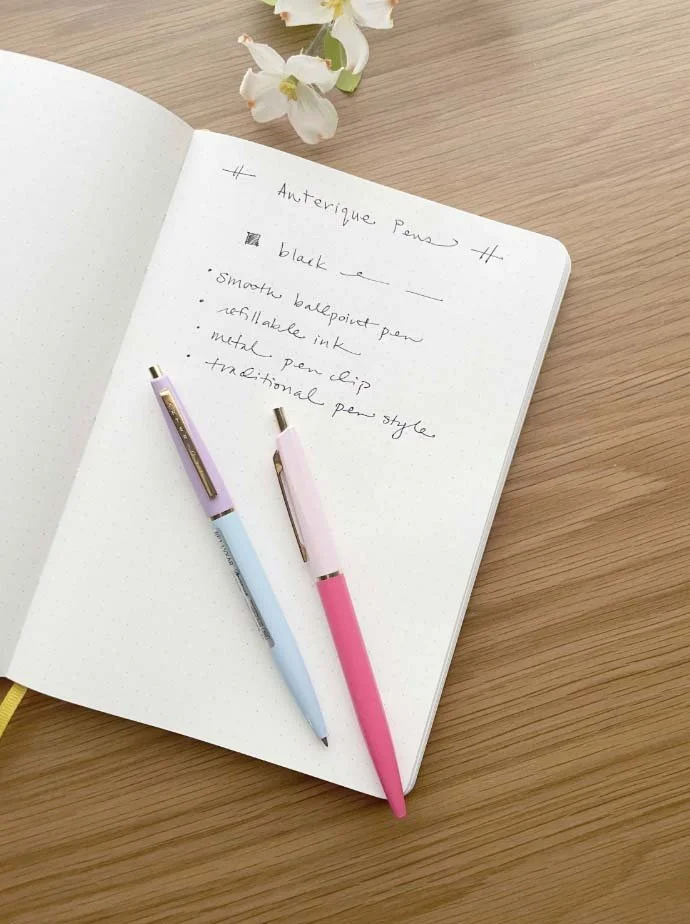 # Anterique Pens #
black
• smooth ballpoint pen
• refillable ink
• metal pen clip
• traditional pen style